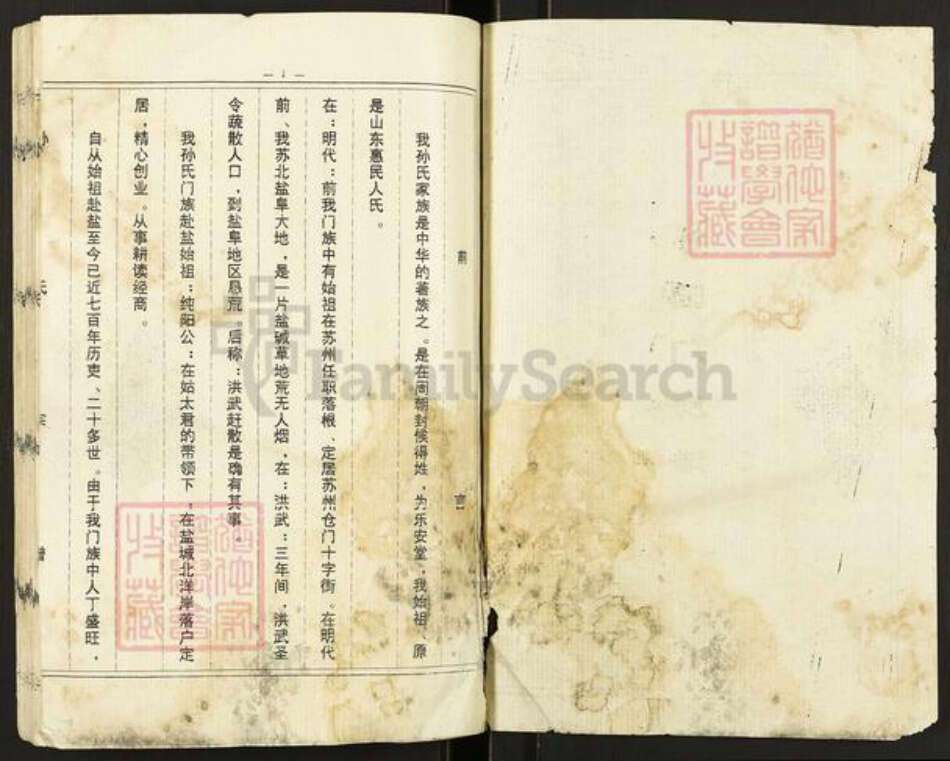 — 1 —
前言
我孙氏家族是中华的著族之。是在周朝封候得姓，为乐安堂、我始祖、原
是山东惠民人氏。
在：明代：前我门族中有始祖在苏州任职落根、定居苏州仓门十字街。在明代
前、我苏北盐阜大地，是一片盐碱草地荒无人烟，在：洪武：三年间，洪武圣
令疏散人口，到盐阜地区恳荒。后称：洪武赶散是确有其事。
我孙氏门族赴盐始祖：纯阳公：在姑太君的带领下，在盐城北洋岸落户定
居，精心创业。从事耕读经商。
自从始祖赴盐至今已近七百年历吏、二十多世。由于我门族中人丁盛旺，
氏
宗
谱
FamilySearch